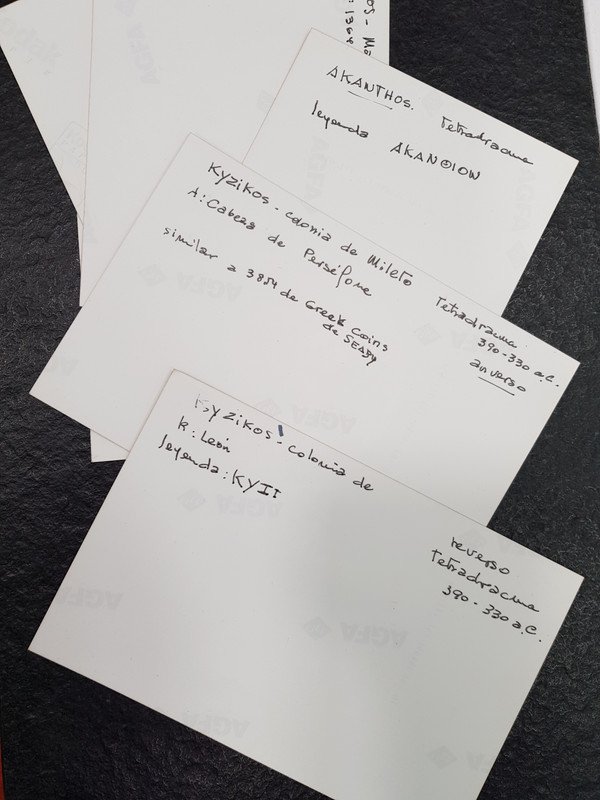 AKANTHOS. Tetradracma
leyenda AKANΘION
Kyzikos - colonia de Mileto Tetradracma
390-330 a.C.
A: Cabeza de Perséfone anverso
similar a 3854 de Greek Coins
de SEABY
Kyzikos - colonia de
R: León
leyenda: KYII
reverso
Tetradracma
390-330 a.C.
AGFA
AGFA
AGFA
AGFA
AGFA
AGFA